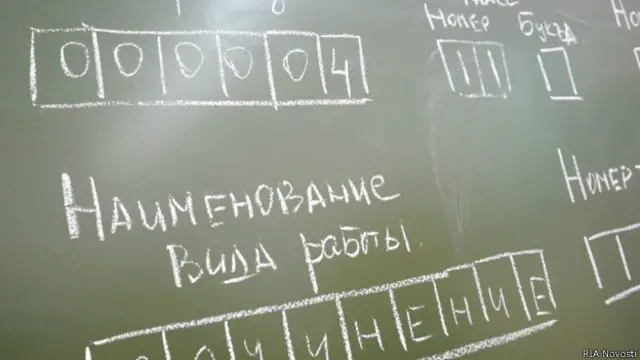 000004
Номер Буква
11
Наименование
Вида работы.
Номер
СОЧИНЕНИЕ
RIA Novosti